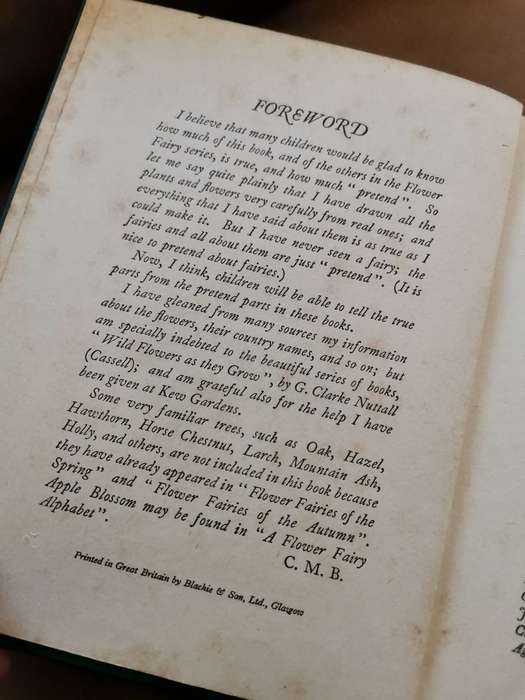 FOREWORD
I believe that many children would be glad to know
how much of this book, and of the others in the Flower
Fairy series, is true, and how much "pretend". So
let me say quite plainly that I have drawn all the
plants and flowers very carefully from real ones; and
everything that I have said about them is as true as I
could make it. But I have never seen a fairy; the
fairies and all about them are just "pretend". (It is
nice to pretend about fairies.)
Now, I think, children will be able to tell the true
parts from the pretend parts in these books.
I have gleaned from many sources my information
about the flowers, their country names, and so on; but
am specially indebted to the beautiful series of books,
"Wild Flowers as they Grow", by G. Clarke Nuttall
(Cassell); and am grateful also for the help I have
been given at Kew Gardens.
Some very familiar trees, such as Oak, Hazel,
Hawthorn, Horse Chestnut, Larch, Mountain Ash,
Holly, and others, are not included in this book because
they have already appeared in "Flower Fairies of the
Spring" and "Flower Fairies of the Autumn".
Apple Blossom may be found in "A Flower Fairy
Alphabet".
C. M. B.
Printed in Great Britain by Blackie & Son, Ltd., Glasgow